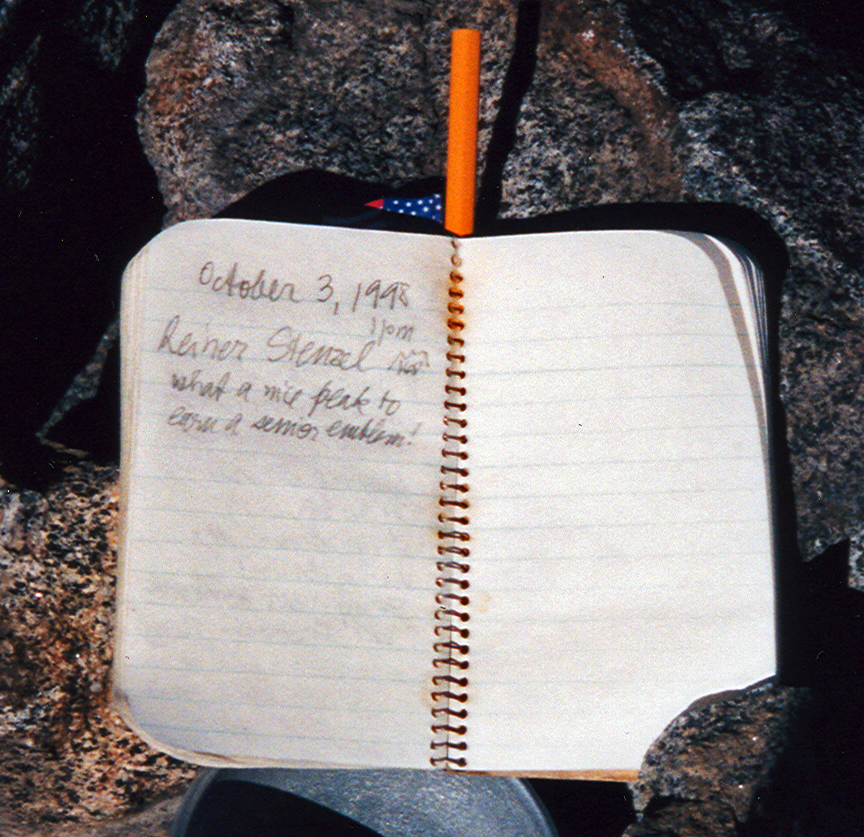 October 3, 1998
1pm
Reiner Stenzel
what a nice peak to
earn a senior emblem!